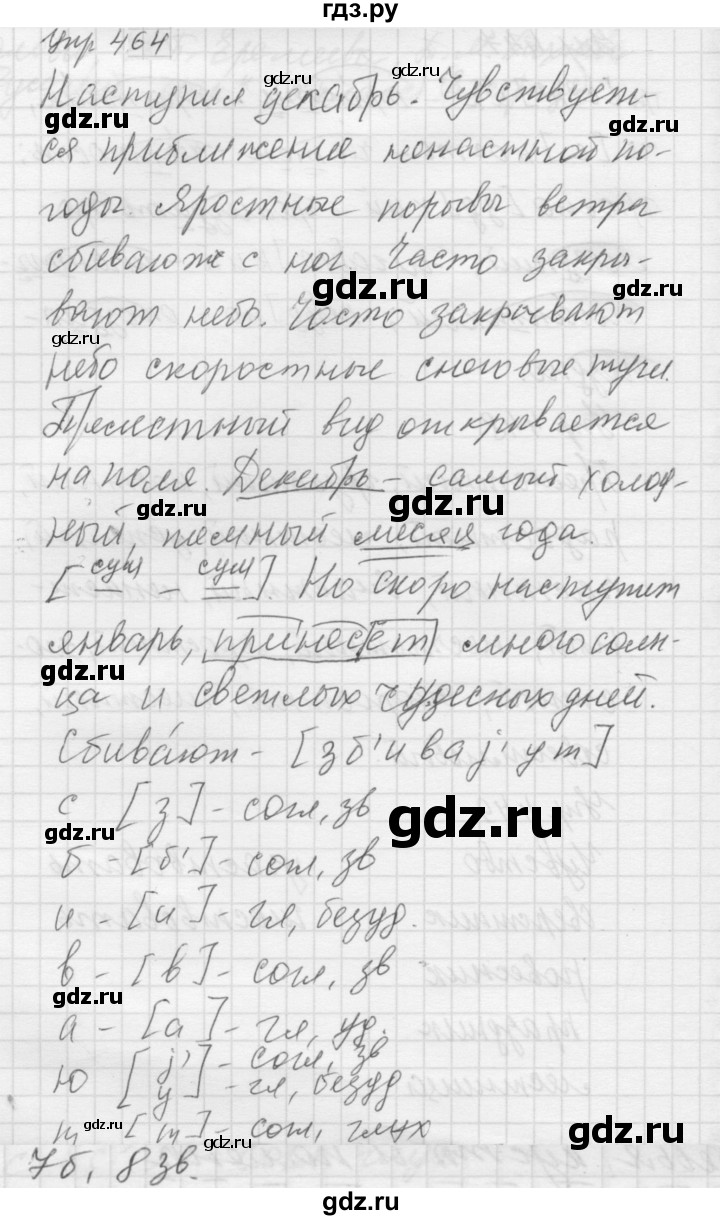 гдз.ру
Упр 464
Наступил декабрь. Чувствует-
ся приближение ненастной по-
годы. Яростные порывы ветра
сбивают с ног Часто закры-
вают небо. Часто закрывают
небо скоростные снеговые тучи.
Прелестный вид открывается
на поля. Декабрь – самый холод-
ный, темный месяц года.
[сущ – сущ] Но скоро наступит
январь, принесет много солн-
ца и светлых чудесных дней.
Сбива́ют – [з б' и в а j' у т]
с [з] – согл, зв
б – [б'] согл, зв
и – [и] – гл, безуд.
в – [в] – согл, зв
а – [а] – гл, уд.
ю [j' – согл, зв
у] – гл, безуд
т – [т] – согл, глух
7б, 8 зв.
gdz.ru